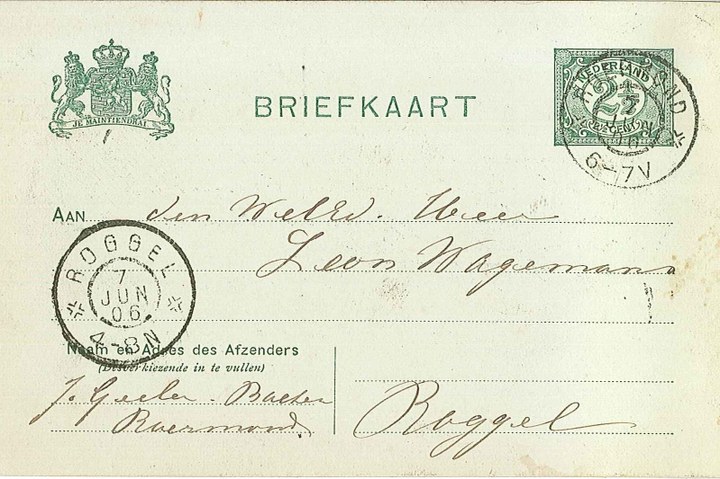 JE MAINTIENDRAI
BRIEFKAART
NEDERLAND
2½
6-7V
AAN den WelEd. Heer
Leon Wagemans
ROGGEL
7
JUN
06
4-8N
Naam en Adres des Afzenders
(Desverkiezende in te vullen)
J.
Roermond
Roggel